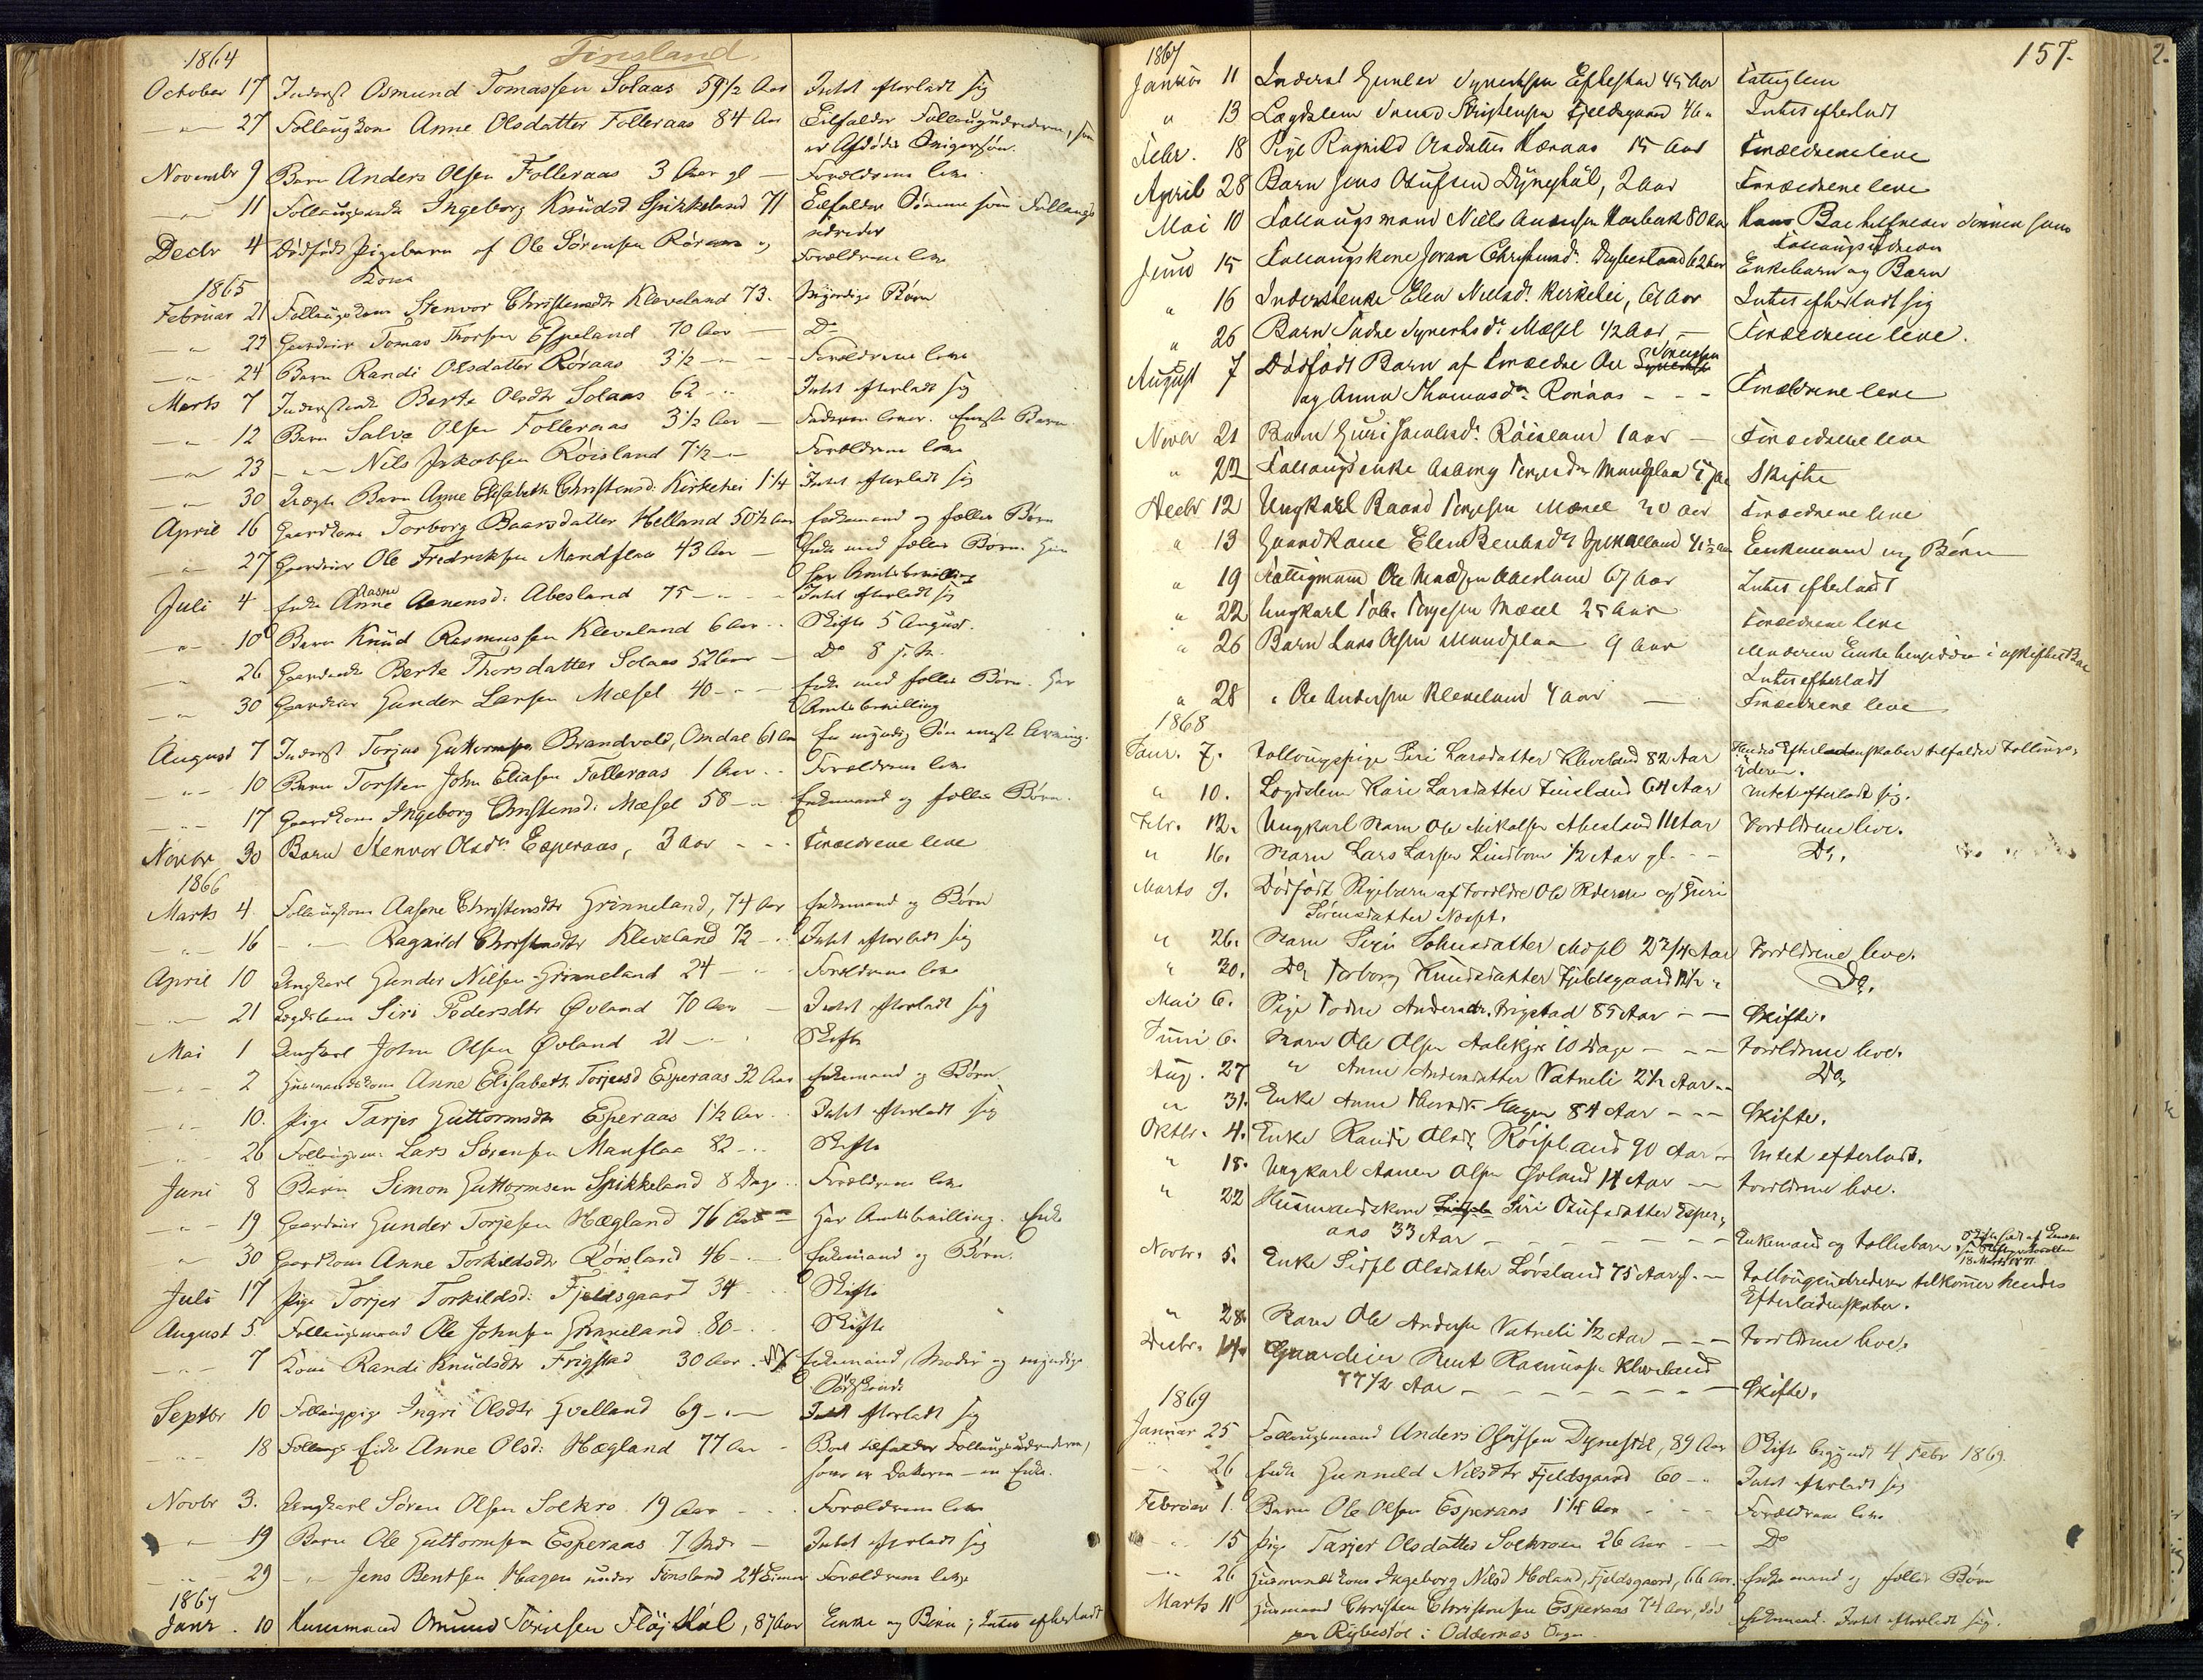 Finsland
1864
October 17 Inderst Osmund Tomassen Solaas 59 1/2 Aar Intet efterladt sig
" 27 Follaugskone Anne Olsdatter Folleraas 84 Aar Tilfalder Follaugudrederen, som
er Afdødes Svigersøn.
Novembr 9 Barn Anders Olsen Folleraas 3 Aar gl — Forældrene leve.
" 11 Follaugsenke Ingeborg Knudsd Spikkeland 71 Tilfalder Sønnen som Follaugs
udreder
Decbr 4 Dødfødt Pigebarn af Ole Sørensen Røraas og Forældrene leve
Kone
1865
Februar 21 Follaugskone Stenvor Christensdtr Kleveland 73. Myndige Børn
" 22 Gaardeier Tomas Thorsen Espeland 70 Aar — Do
" 24 Barn Randi Olsdatter Røraas 3 1/2 — Forældrene leve
Marts 7 Inderstenke Berte Olsdtr Solaas 62 " Intet efterladt sig
" 12 Barn Salve Olsen Folleraas 3 1/2 Aar — Faderen lever. Eneste Barn
" 23 — " — Nils Jakobsen Røisland 7 1/2 — Forældrene leve
" 30 Lægds Barn Anne Elisabeth Christensd: Kirkehei 1 1/4 Intet efterladt sig
April 16 Gaardkone Torborg Baarsdatter Helland 50 1/2 Aar Enkemand og fælles Børn
" 27 Gaardeier Ole Fredriksen Mandflaa 43 Aar — Enke med fælles Børn. Hun
har Amtsbevilling
Juli 4 Enke Anne Aasne Aanensd: Abesland 75 — Intet efterladt sig
" 10 Barn Knud Rasmussen Kleveland 6 Aar Skifte 5 August.
" 26 Gaardenke Berte Thorsdatter Solaas 52 Aar — Do 8 s. M.
" 30 Gaardeier Gunder Larsen Mæsel 40 — Enke med fælles Børn. Har
Amtsbevilling
August 7 Inderst Torjus Guttormsen Brandvold, Omdal 61 Aar En myndig Søn eneste Arving.
" 10 Barn Torsten John Eliasen Folleraas 1 Aar Forældrene leve
" 17 Gaardkone Ingeborg Christensd: Mæsel 58 — Enkemand og fælles Børn.
Novbr 30 Barn Stenvor Olsdr Esperaas, 3 Aar — Forældrene leve
1866
Marts 4 Follaugskone Aasne Christensdtr Grinneland, 74 Aar Enkemand og Børn
" 16 — " — Ragnild Christensdtr Kleveland 72 — Intet efterladt sig
April 10 Ungkarl Gunder Nilsen Grinneland 24 — Forældrene leve
" 21 Lægdslem Siri Pedersdtr Øvland 70 Aar — Intet efterladt sig
Mai 1 Ungkarl John Olsen Øvland 21 — Skifte
" 2 Husmandskone Anne Elisabeth Torjusd Esperaas 32 Aar Enkemand og Børn.
" 10. Pige Tarjer Guttormsdtr Esperaas 1 1/2 Aar Intet efterladt sig
" 26 Follaugsm. Lars Sørensen Manflaa 82 — Skifte
Juni 8 Barn Simon Guttormsen Spikkeland 8 Dage Forældrene leve
" 19 Gaardeier Gunder Torjesen Hægland 76 Aar — Har Amtsbevilling. Enke
" 30 Gaardkone Anne Torkildsdtr Røisland 46 — Enkemand og Børn.
Juli 17 Pige Torjer Torkildsd: Fjeldsgaard 34 Skifte
August 5 Follaugsmand Ole Johnsen Grinneland 80 — Skifte
" 7 Kone Randi Knudsdtr Frigstad 30 Aar. Enkemand, Moder og myndige
Sødskende
Septbr 10 Follaugpige Ingri Olsdtr Hvelland 69 — Intet efterladt sig
" 18 Follaugs Enke Anne Olsd: Hægland 77 Aar — Boet tilfalder Follaugsudrederen,
som er Datteren — en Enke.
Novbr 3. Ungkarl Søren Olsen Solkro 19 Aar Forældrene leve
" 19 Barn Ole Guttormsen Esperaas 7 Mdr — Intet efterladt sig
" 29 — " Jens Bentsen Hagen under Finsland 24 Timer Forældrene leve
1867
Janr. 10 Huusmand Omund Torjussen Fløistøl, 87 Aar Enke og Børn; Intet efterladt
157.
1867
Januar 11 Inderst Gunder Syvertsen Eftestad 45 Aar Fattiglem
" 13 Lægdslem Svend Christensen Fjeldsgaard 46 " Intet efterladt
Febr. 18 Pige Ragnild Olsdatter Røraas 15 Aar Forældrene leve
April 28 Barn Jens Olufsen Dynestøl, 2 Aar Forældrene leve
Mai 10 Follaugsmand Niels Aanensen 80 Aar Hans Boe tilfalder Sønnen som
Follaugsudreder
Juni 15 Follaugskone Joran Christensdr 62 Aar Enkemand og Børn
" 16 Inderstenke Elen Nielsdr Kirkehei, 61 Aar Intet efterladt sig
" 26 Barn Syvertsdr Mæsel 1/2 Aar — Forældrene leve.
August 7 Dødfødt Barn af Forældre Ole Sørensen
og Anna Thomasdr Røraas — Forældrene leve
Novbr 21 Barn Guri Jacobsdr Røisland 1 Aar — Forældrene leve
" 22 Follaugsenke Aaborg Mandflaa Skifte
Decbr 12 Ungkarl Baard Torjesen Mæsel 30 Aar Forældrene leve
" 13 Gaardkone Elen Bentsdr Spikkeland 41 1/2 Aar Enkemand og Børn
" 19 Fattigmand Ole Madsen Abesland 67 Aar Intet efterladt
" 22 Ungkarl Torjesen Mæsel 25 Aar Forældrene leve
" 26 Barn Lars Olsen Mandflaa 9 Aar Moderen Enke hensidder i uskiftet Boe
Intet efterladt
" 28 " Ole Andersen Kleveland 4 Aar — Forældrene leve
1868
Janr. 7. Follougspige Siri Larsdatter Kleveland 82 Aar Hendes Efterladenskaber tilfalder Follougs-
yderen.
" 10. Lægdslem Kari Larsdatter Finsland 64 Aar Intet efterladt sig.
Febr. 12. Ungkarl Barn Ole Mikalsen Abesland 11 Aar Foreldrene leve.
" 16. Barn Lars Larsen Lindkom 1/2 Aar gl. Do.
Marts 9. Dødfødt Pigebarn af Foreldre Ole Pedersen og Guri
Sørensdatter
" 26. Barn Siri Johnsdatter Mæsel 2 3/4 Aar Foreldrene leve.
" 30. Do Torborg Knudsdatter Fjeldsgaard Do.
Mai 6. Pige Todne Andersdtr. Frigstad 85 Aar — Skifte.
Juni 6. Barn Ole Olsen 10 Dage — Foreldrene leve.
Aug. 27 " Anne Andersdatter Vatneli 2 1/2 Aar — Do
" 31. Enke Anne Hagen 84 Aar — Skifte.
Oktbr. 4. Enke Randi Olsdr Røisland 90 Aar Intet efterladt.
" 18. Ungkarl Aanen Olsen Øvland 14 Aar — Foreldrene leve.
" 22 Husmandskone Siri Olufsdatter Esper-
aas 33 Aar — Enkemand og Follesbarn
Novbr. 5. Enke Sidsel Olsdatter Løvsland 75 Aar Follougudrederen tilkommer hendes
Efterladenskaber.
" 28. Barn Ole Andersen Vatneli 1/2 Aar — Foreldrene leve.
Decbr. 14. Gaardeier Knut Rasmusen Kleveland
77 1/2 Aar — Skifte.
1869
Januar 25 Follaugsmand Anders Olufsen Dynestøl, 89 Aar Skifte begyndt 4 Febr 1869.
" 26 Enke Gunneld Nilsdtr Fjeldsgaard 60 — Intet efterladt sig
Februar 1. Barn Ole Olsen Esperaas 1 1/4 Aar Forældrene leve
" 15 Pige Tarjer Olsdatter Solkroen 26 Aar — Do
" 26 Husmandskone Ingeborg Nilsd Moland, Fjeldsgaard, 66 Aar. Enkemand og fælles Børn
Marts 11 Husmand Christen Christensen Esperaas 74 Aar, død Enkemand. Intet efterladt sig.
paa Rybestøl i Oddernes Sogn.